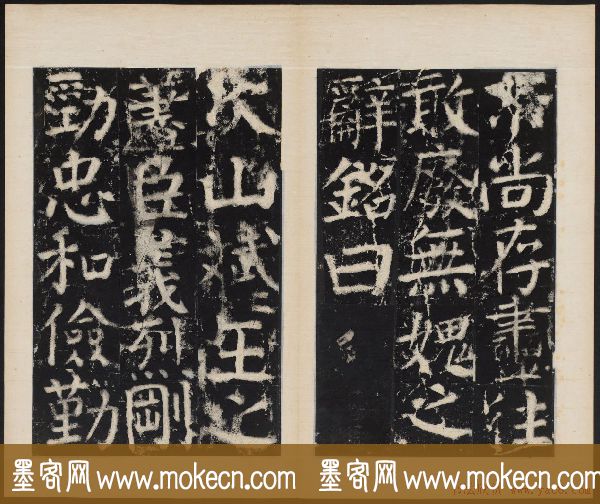 尚存畫往
敢廢無愧之
辭銘曰
山斌〻王之
藎臣義烈剛
勁忠和儉勤
墨客网 www.mokecn.com 墨客网 www.mokecn.com